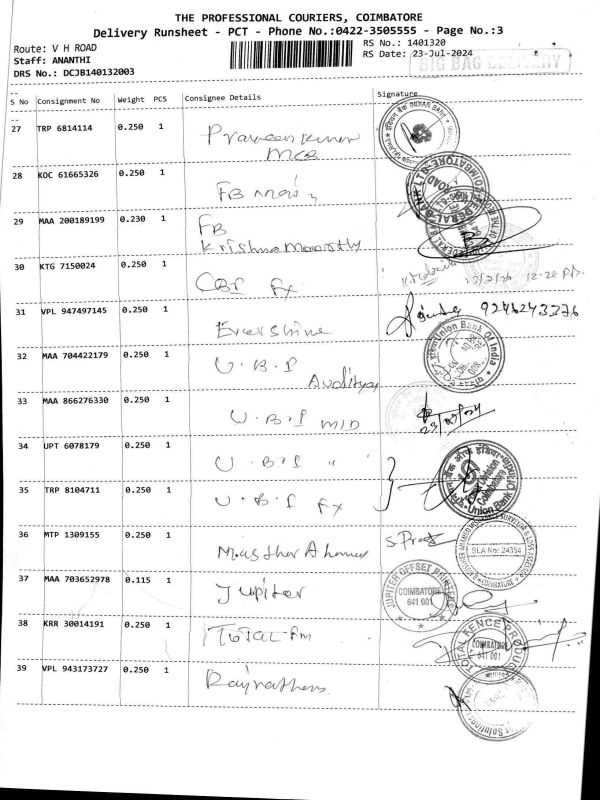 THE PROFESSIONAL COURIERS, COIMBATORE
Delivery Runsheet - PCT - Phone No.:0422-3505555 - Page No.:3
Route: V H ROAD
RS No.: 1401320
Staff: ANANTHI
RS Date: 23-Jul-2024
BIG BAG DELIVERY
DRS No.: DCJB140132003
S No Consignment No Weight PCS Consignee Details Signature
27 TRP 6814114 0.250 1 Praveen Kumar
MCB
INDIAN BANK
28 KOC 61665326 0.250 1 FB Main
29 MAA 200189199 0.230 1 FB
Krishna Moorthy
30 KTG 7150024 0.250 1 CBI Fx
31 VPL 947497145 0.250 1 Evershine 9246243376
32 MAA 704422179 0.250 1 U.B.I
Union Bank Of India
33 MAA 866276330 0.250 1 U.B.I MID
34 UPT 6078179 0.250 1 U.B.I "
35 TRP 8104711 0.250 1 U.B.I Fx
Coimbatore
Union Bank Of
36 MTP 1309155 0.250 1
SLA No: 24354
COIMBATORE
37 MAA 703652978 0.115 1 Jupiter
JUPITER OFFSET PRINTERS
COIMBATORE
641 001
38 KRR 30014191 0.250 1 TOTAL
TOTAL FENCE PRODUCTS
COIMBATORE
641 001
39 VPL 943173727 0.250 1